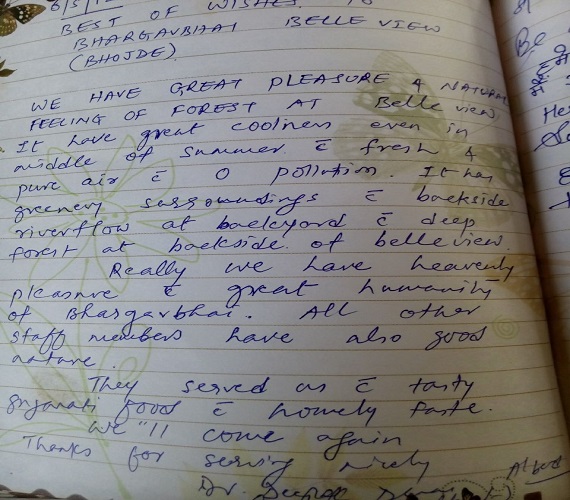 8/5/12
BEST OF WISHES TO
BHARGAVBHAI BELLE VIEW
(BHOJDE).
WE HAVE GREAT PLEASURE & NATURAL
FEELING OF FOREST AT Belle view.
It have great coolness even in
middle of summer c̄ fresh &
pure air c̄ O pollution. It has
greenery surroundings c̄ backside
riverflow at backyard c̄ deep
forest at backside of belleview.
Really we have heavenly
pleasure c̄ great humanity
of Bhargavbhai. All other
staff members have also good
nature.
They served us c̄ tasty
gujarati food c̄ homely taste.
We "ll come again
Thanks for serving nicely
Dr. Deepak